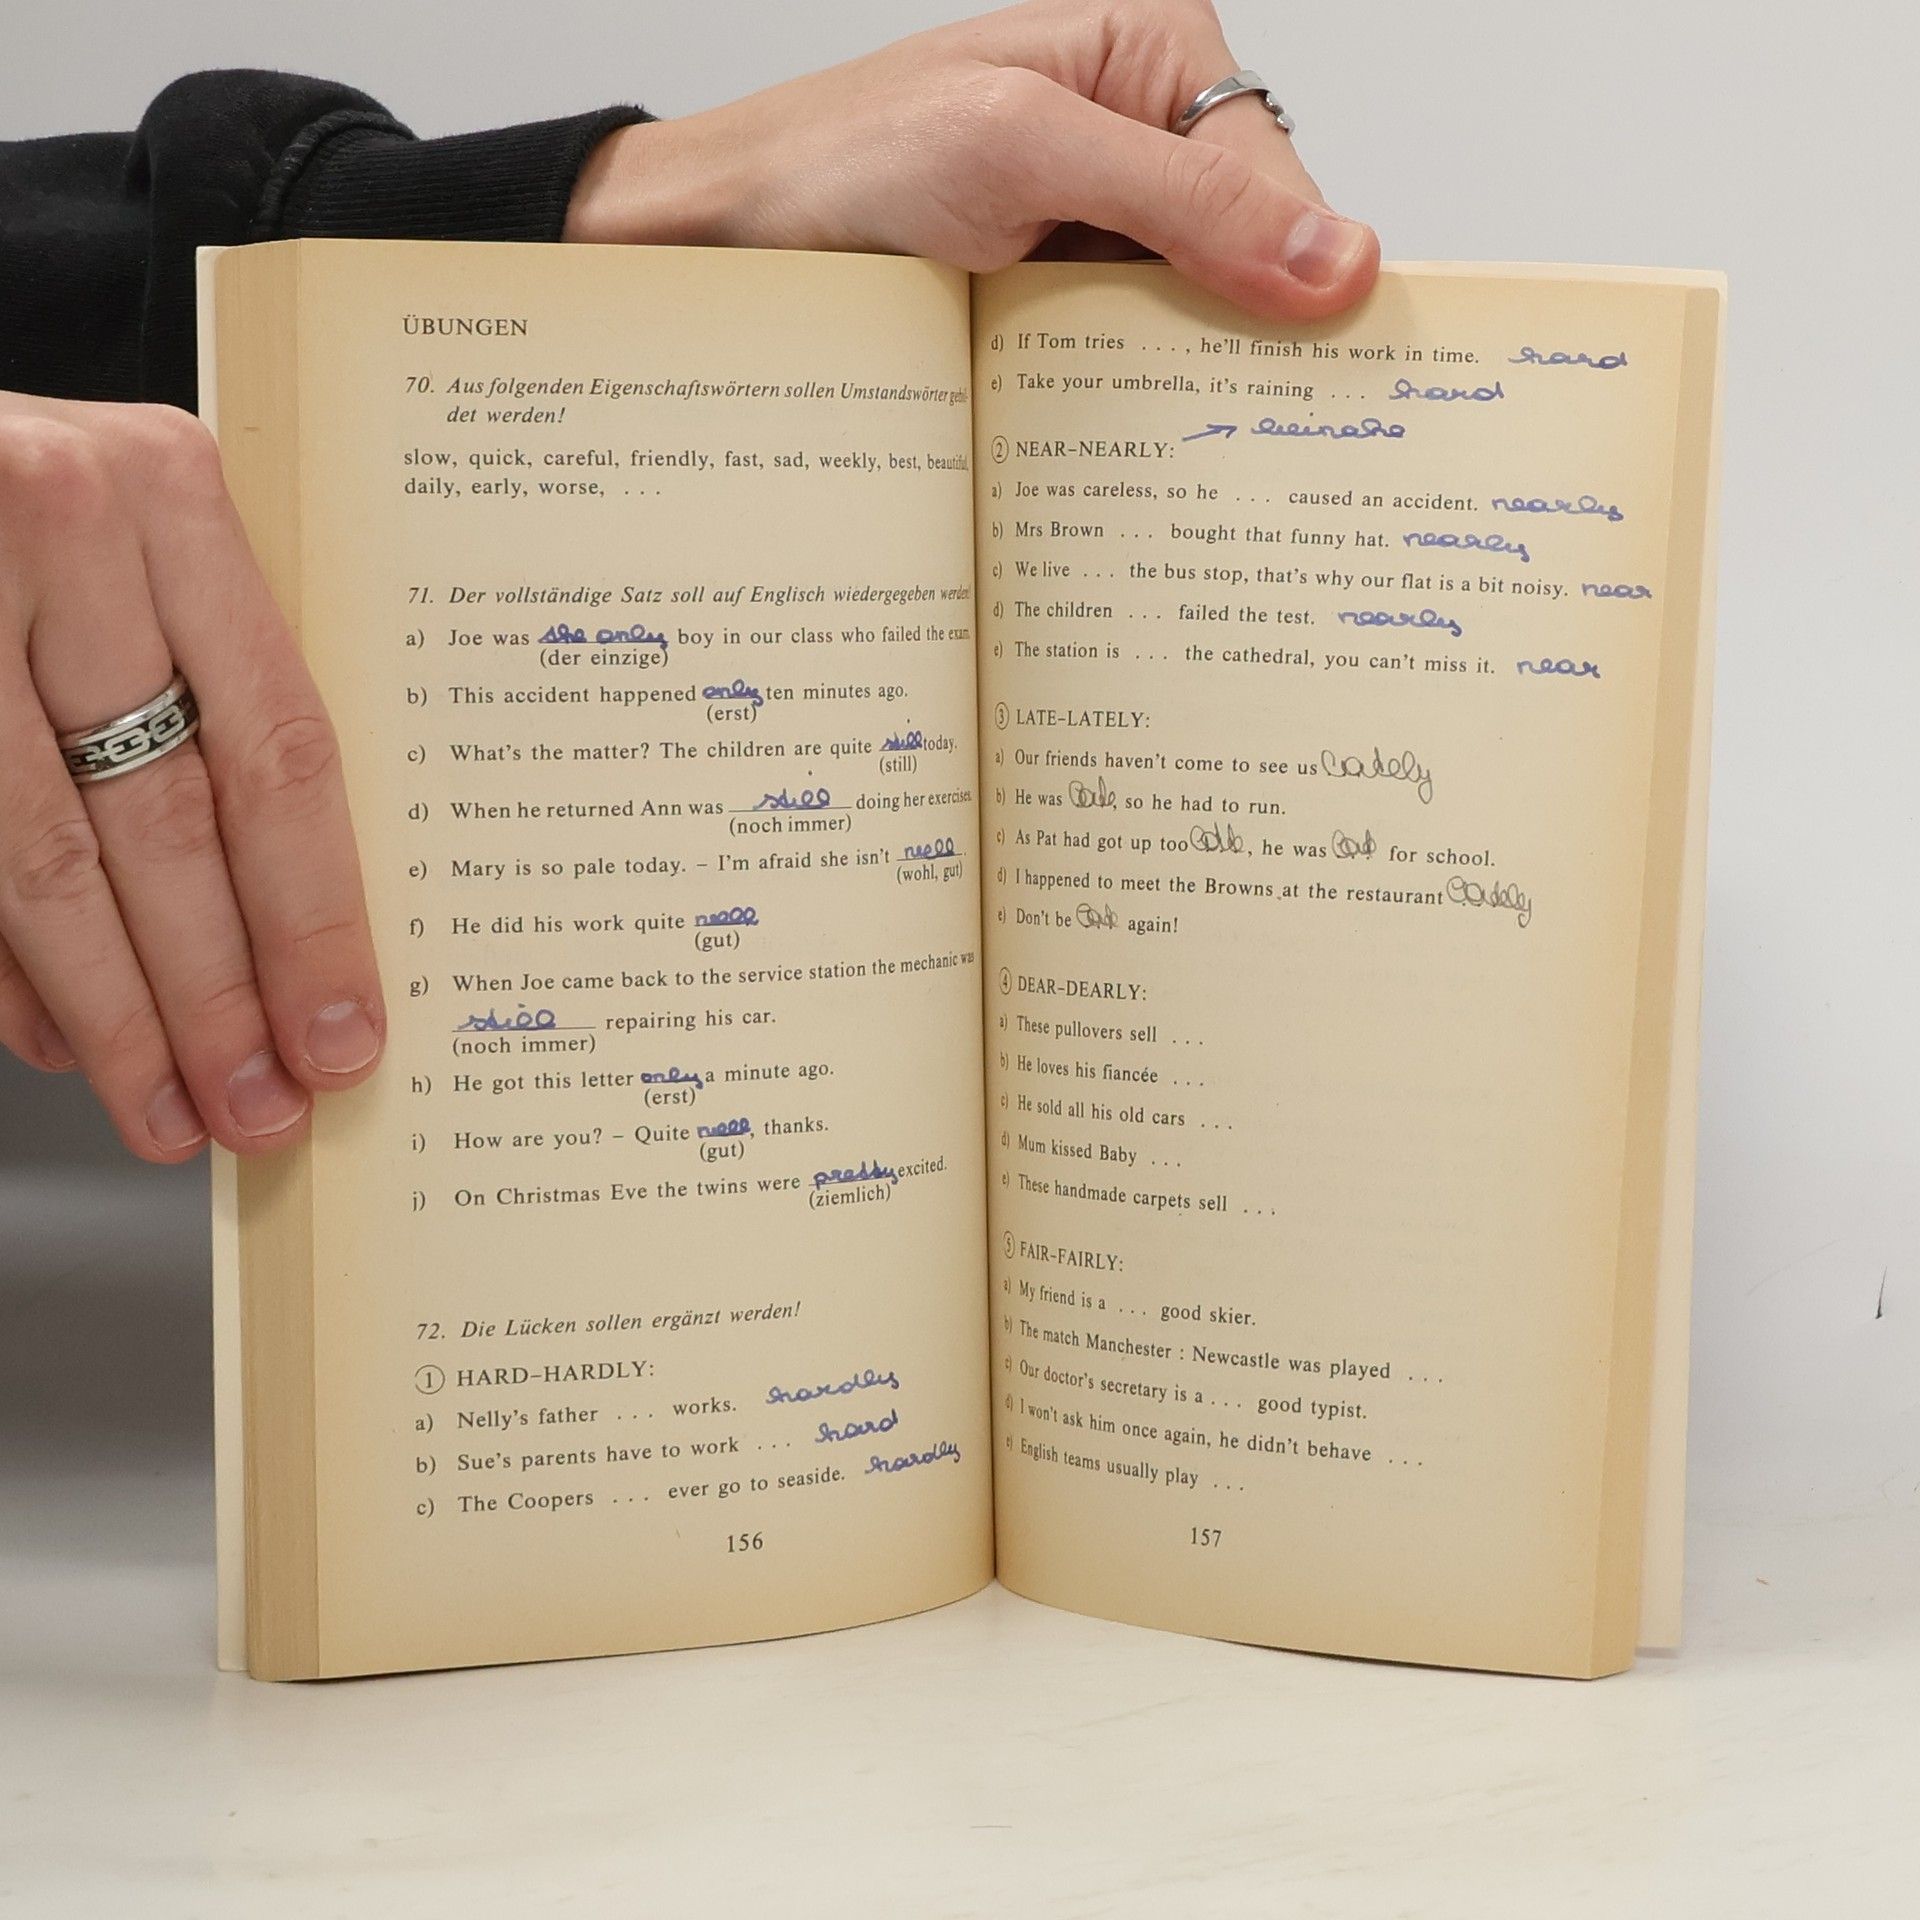 ÜBUNGEN
70. Aus folgenden Eigenschaftswörtern sollen Umstandswörter gebil-
det werden!
slow, quick, careful, friendly, fast, sad, weekly, best, beautiful,
daily, early, worse, ...
71. Der vollständige Satz soll auf Englisch wiedergegeben werden!
a) Joe was the only boy in our class who failed the exam.
(der einzige)
b) This accident happened only ten minutes ago.
(erst)
c) What's the matter? The children are quite still today.
(still)
d) When he returned Ann was still doing her exercises.
(noch immer)
e) Mary is so pale today. – I'm afraid she isn't well.
(wohl, gut)
f) He did his work quite well
(gut)
g) When Joe came back to the service station the mechanic was
still repairing his car.
(noch immer)
h) He got this letter only a minute ago.
(erst)
i) How are you? – Quite well, thanks.
(gut)
j) On Christmas Eve the twins were pretty excited.
(ziemlich)
72. Die Lücken sollen ergänzt werden!
1 HARD–HARDLY:
a) Nelly's father ... works. hardly
b) Sue's parents have to work ... hard
c) The Coopers ... ever go to seaside. hardly
156
d) If Tom tries ..., he'll finish his work in time. hard
e) Take your umbrella, it's raining ... hard
→ beinahe
2 NEAR–NEARLY:
a) Joe was careless, so he ... caused an accident. nearly
b) Mrs Brown ... bought that funny hat. nearly
c) We live ... the bus stop, that's why our flat is a bit noisy. near
d) The children ... failed the test. nearly
e) The station is ... the cathedral, you can't miss it. near
3 LATE–LATELY:
a) Our friends haven't come to see us lately
b) He was late, so he had to run.
c) As Pat had got up too late, he was late for school.
d) I happened to meet the Browns at the restaurant lately
e) Don't be late again!
4 DEAR–DEARLY:
a) These pullovers sell ...
b) He loves his fiancée ...
c) He sold all his old cars ...
d) Mum kissed Baby ...
e) These handmade carpets sell ...
5 FAIR–FAIRLY:
a) My friend is a ... good skier.
b) The match Manchester : Newcastle was played ...
c) Our doctor's secretary is a ... good typist.
d) I won't ask him once again, he didn't behave ...
e) English teams usually play ...
157